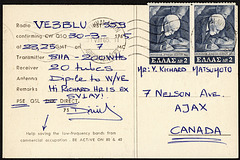 Radio VE3BLU
confirming our QSO 30-3-
at 2325 GMT on 7 MC
Transmitter 811A - 200 Wts
Receiver 20 tubes
Antenna Dipole to W/VE
Remarks Hi Richard He is ex
SV1AY!
PSE QSL DIRECT.
73
Help saving the low-frequency bands from
commercial occupation. BE ACTIVE ON 80 & 40
ΕΛΛΑΣ ΔΡ 2
ΕΛΛΑΣ ΔΡ 2
Mr. Y. Richard Matsumoto
7 Nelson Ave.
AJAX
CANADA